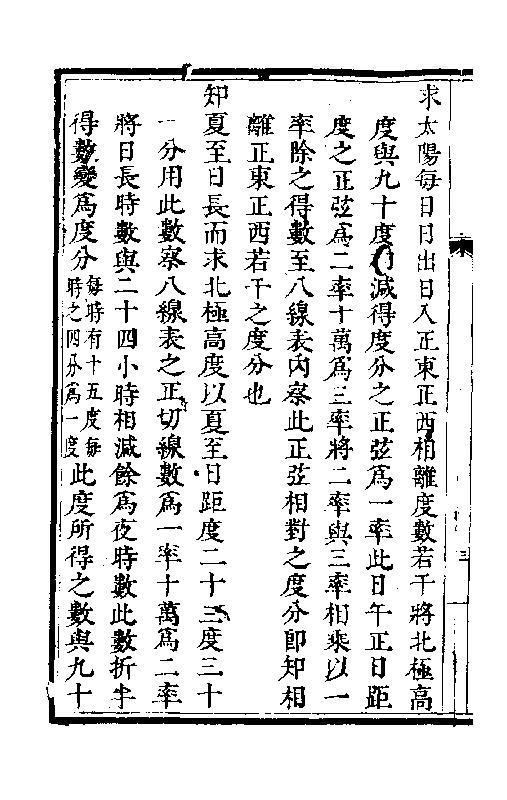 求太陽每日日出日入正東正西相離度數若干將北極高
度與九十度相減得度分之正弦爲一率此日午正日距
度之正弦爲二率十萬爲三率將二率與三率相乘以一
率除之得數至八線表內察此正弦相對之度分卽知相
離正東正西若干之度分也
知夏至日長而求北極高度以夏至日距度二十三度三十
一分用此數察八線表之正切線數爲一率十萬爲二率
將日長時數與二十四小時相減餘爲夜時數此數折半
得數變爲度分每時有十五度每時之四分爲一度此度所得之數與九十
三